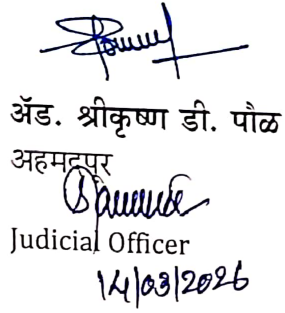 ॲड. श्रीकृष्ण डी. पौळ
अहमदपूर
Judicial Officer
14/03/2026